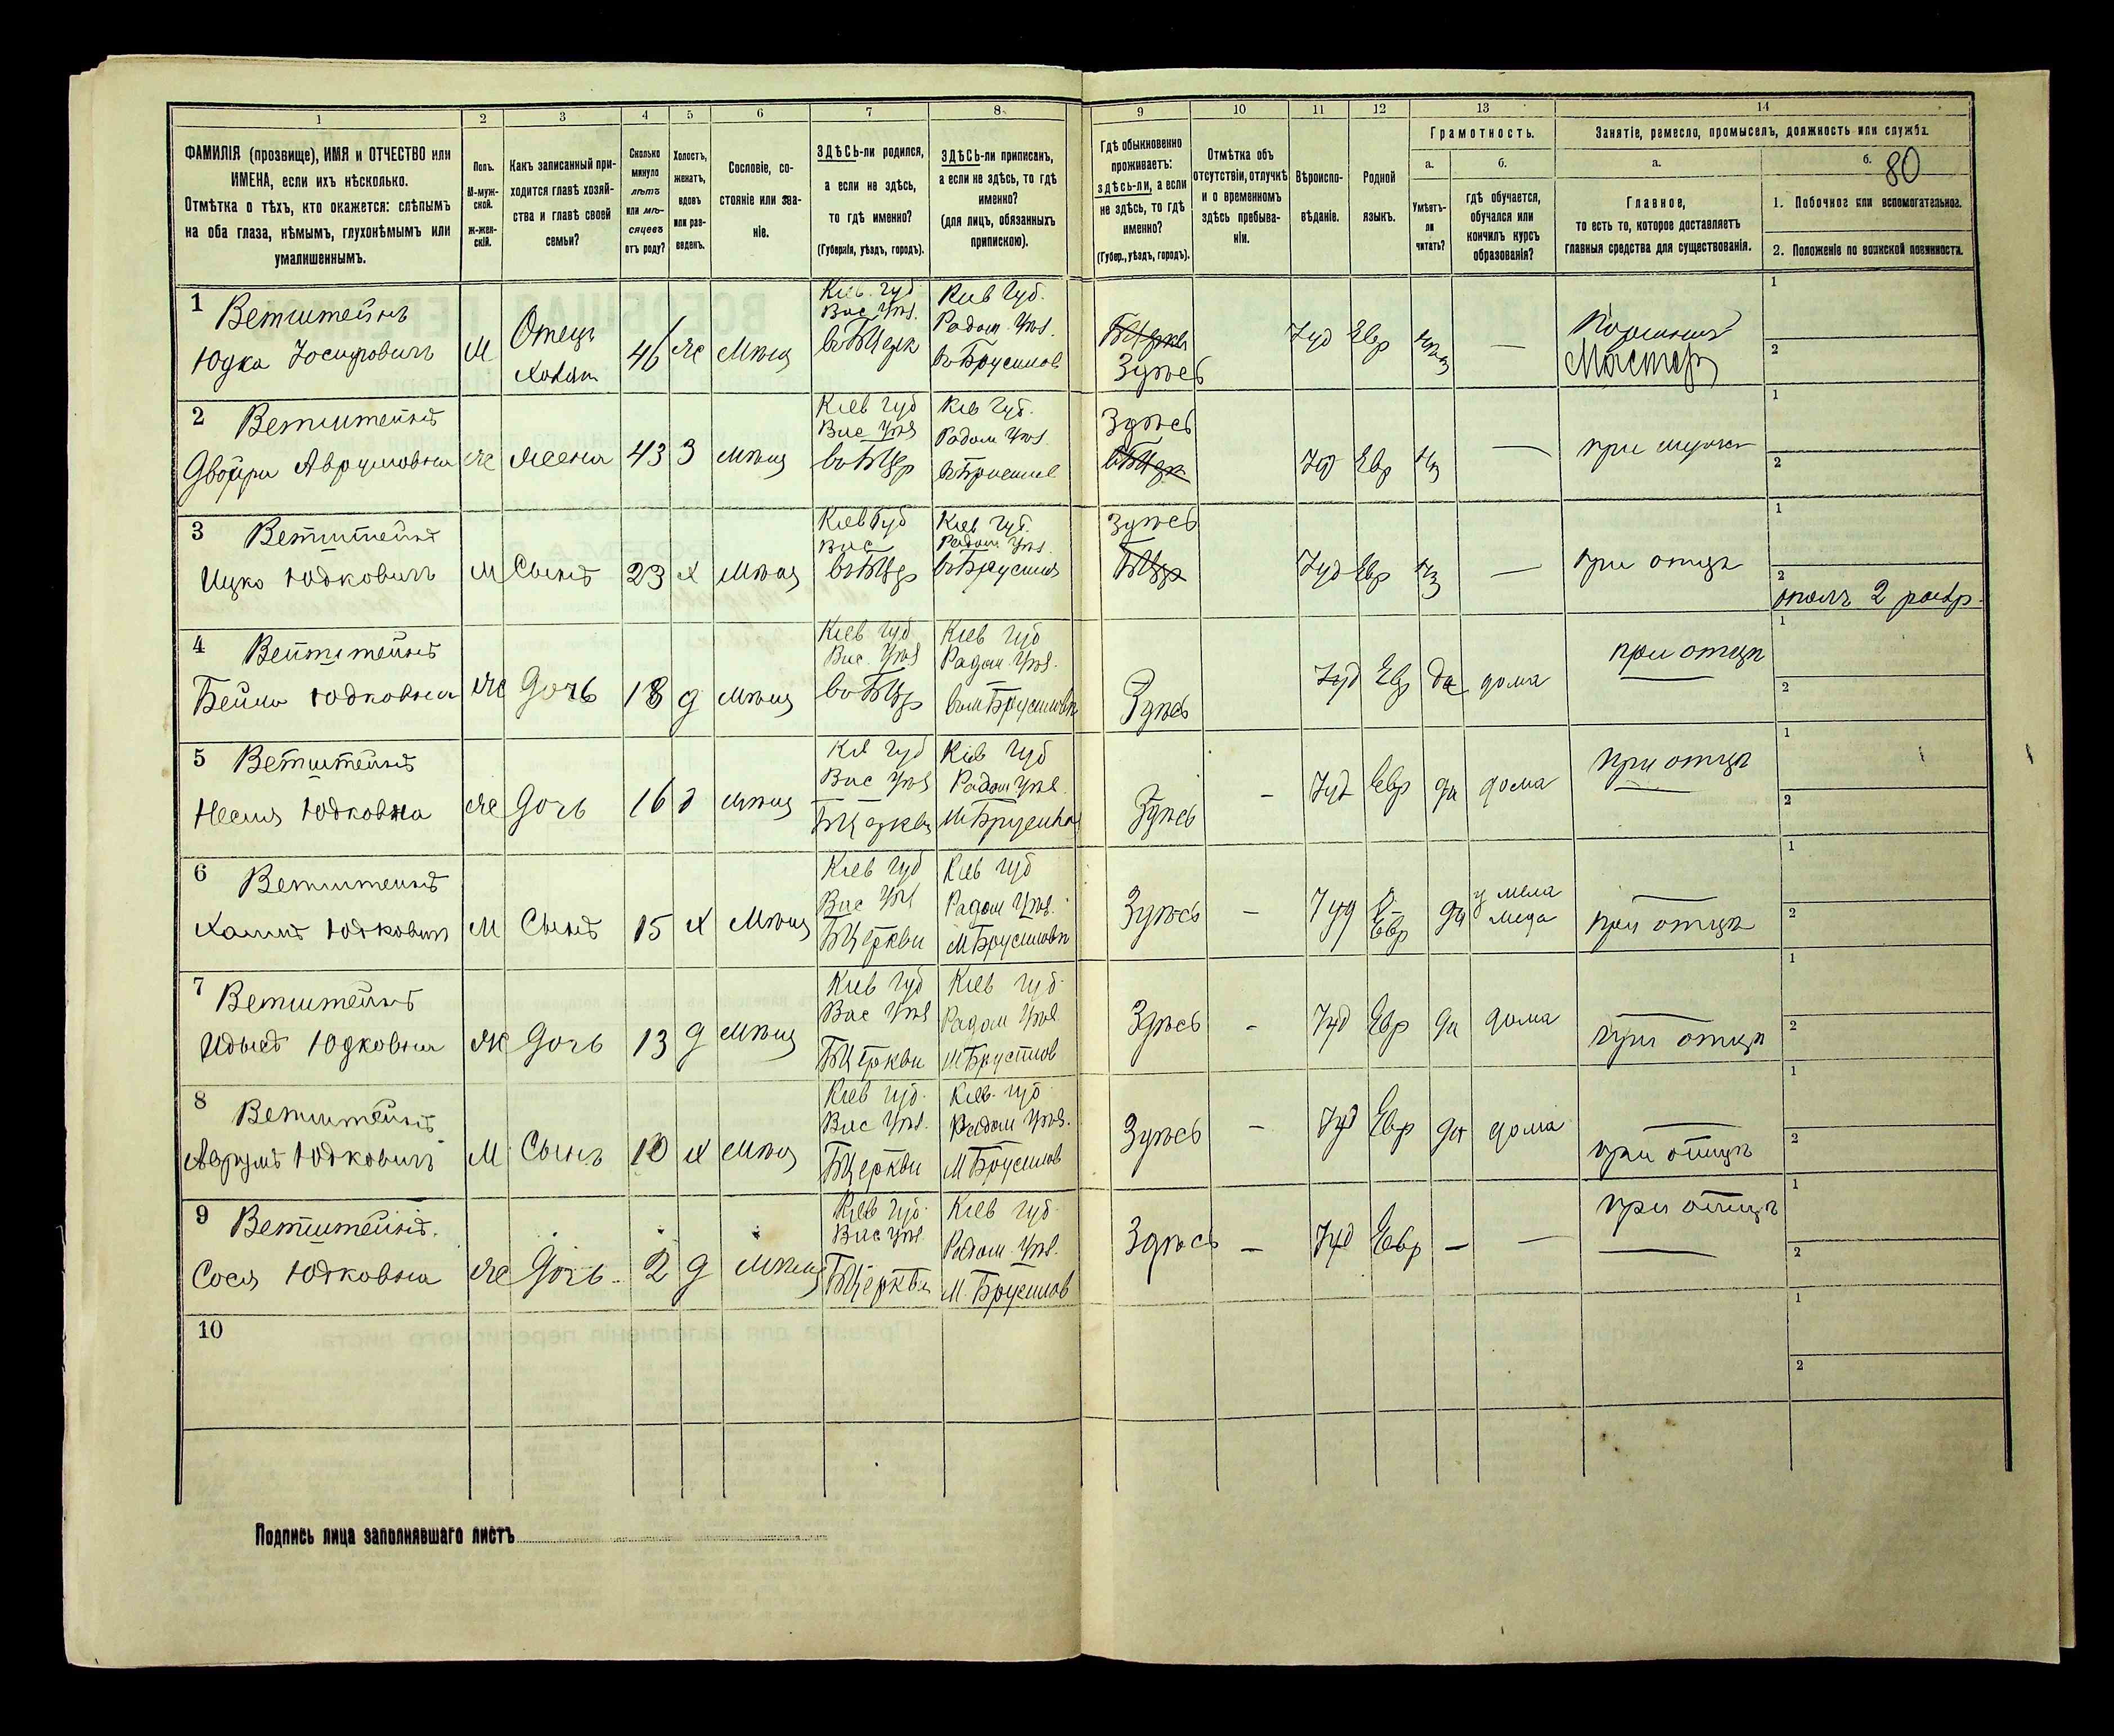 1
2
3
4
5
6
7
8
9
10
11
12
13
14
ФАМИЛІЯ (прозвище), ИМЯ и ОТЧЕСТВО или
ИМЕНА, если ихъ нѣсколько.
Отмѣтка о тѣхъ, кто окажется: слѣпымъ
на оба глаза, нѣмымъ, глухонѣмымъ или
умалишеннымъ.
Полъ.
М-муж-
ской.
Ж-жен-
скій.
Какъ записанный при-
ходится главѣ хозяй-
ства и главѣ своей
семьи?
Сколько
минуло
лѣтъ
или мѣ-
сяцевъ
отъ роду?
Холостъ,
женатъ,
вдовъ
или раз-
веденъ.
Сословіе, со-
стояніе или зва-
ніе.
ЗДѢСЬ-ли родился,
а если не здѣсь,
то гдѣ именно?
(Губернія, уѣздъ, городъ).
ЗДѢСЬ-ли приписанъ,
а если не здѣсь, то гдѣ
именно?
(для лицъ, обязанныхъ
припискою).
Гдѣ обыкновенно
проживаетъ:
здѣсь-ли, а если
не здѣсь, то гдѣ
именно?
(Губер., уѣздъ, городъ).
Отмѣтка объ
отсутствіи, отлучкѣ
и о временномъ
здѣсь пребыва-
ніи.
Вѣроиспо-
вѣданіе.
Родной
языкъ.
Грамотность.
а.
б.
Умѣетъ-
ли
читать?
гдѣ обучается,
обучался или
кончилъ курсъ
образованія?
Занятіе, ремесло, промыселъ, должность или служба.
а.
б.
80
Главное,
то есть то, которое доставляетъ
главныя средства для существованія.
1. Побочное или вспомогательное.
2. Положеніе по воинской повинности.
1 Ветштейнъ
Юдка Іосифовичъ
М
Отецъ
46
Ж
Мѣщ
Кіев. Губ
Вас Уѣз.
въ БЦерк
Кіев Губ.
Радом. Уѣз.
въ Брусилов
Здѣсь
Іуд
Евр
—
Мастер
1
2
2 Ветштейнъ
Двойра Аврумовна
Ж
Жена
43
З
Мѣщ
Кіев Губ
Вас Уѣз
въ БЦер
Кіев Губ.
Радом Уѣз.
Здѣсь
Іуд
Евр
—
1
2
3 Ветштейнъ
Ицко Юдковичъ
М
Сынъ
23
Х
Мѣщ
Кіев Губ
Вас
въ БЦер
Кіев Губ.
Радом Уѣз.
въ Брусилов
Здѣсь
Іуд
Евр
—
при отцѣ
1
2
ополч 2 разр.
4 Ветштейнъ
Бейла Юдковна
Ж
Дочь
18
д
Мѣщ
Кіев Губ
Вас. Уѣз
въ БЦер
Кіев Губ
Радом. Уѣз.
въ м Брусиловѣ
Здѣсь
Іуд
Евр
да
дома
при отцѣ
1
2
5 Ветштейнъ
Несия Юдковна
Ж
Дочь
16
д
Мѣщ
Кіев Губ
Вас Уѣз
БЦеркви
Кіев Губ
Радом Уѣз.
М Брусилов
Здѣсь
–
Іуд
Евр
да
дома
при отцѣ
1
2
6 Ветштейнъ
Хаимъ Юдковичъ
М
Сынъ
15
Х
Мѣщ
Кіев Губ
Вас Уѣз
БЦеркви
Кіев Губ
Радом Уѣз.
М Брусиловѣ
Здѣсь
–
Іуд
Евр
да
у мела
меда
при отцѣ
1
2
7 Ветштейнъ
Юдковна
Ж
Дочь
13
д
Мѣщ
Кіев Губ
Вас Уѣз
БЦеркви
Кіев Губ.
Радом Уѣз
М Брусилов
Здѣсь
–
Іуд
Евр
да
дома
при отцѣ
1
2
8 Ветштейнъ
Аврумъ Юдковичъ
М
Сынъ
10
Х
Мѣщ
Кіев Губ.
Вас Уѣз.
БЦеркви
Кіев. Губ
Радом Уѣз.
М Брусилов
Здѣсь
–
Іуд
Евр
да
дома
при отцѣ
1
2
9 Ветштейнъ.
Сося Юдковна
Ж
Дочь
2
д
Мѣщ
Кіев Губ.
Вас Уѣз.
БЦеркви
Кіев Губ
Радом. Уѣз.
М. Брусилов
Здѣсь
–
Іуд
Евр
–
—
при отцѣ
1
2
10
1
2
Подпись лица заполнявшаго листъ